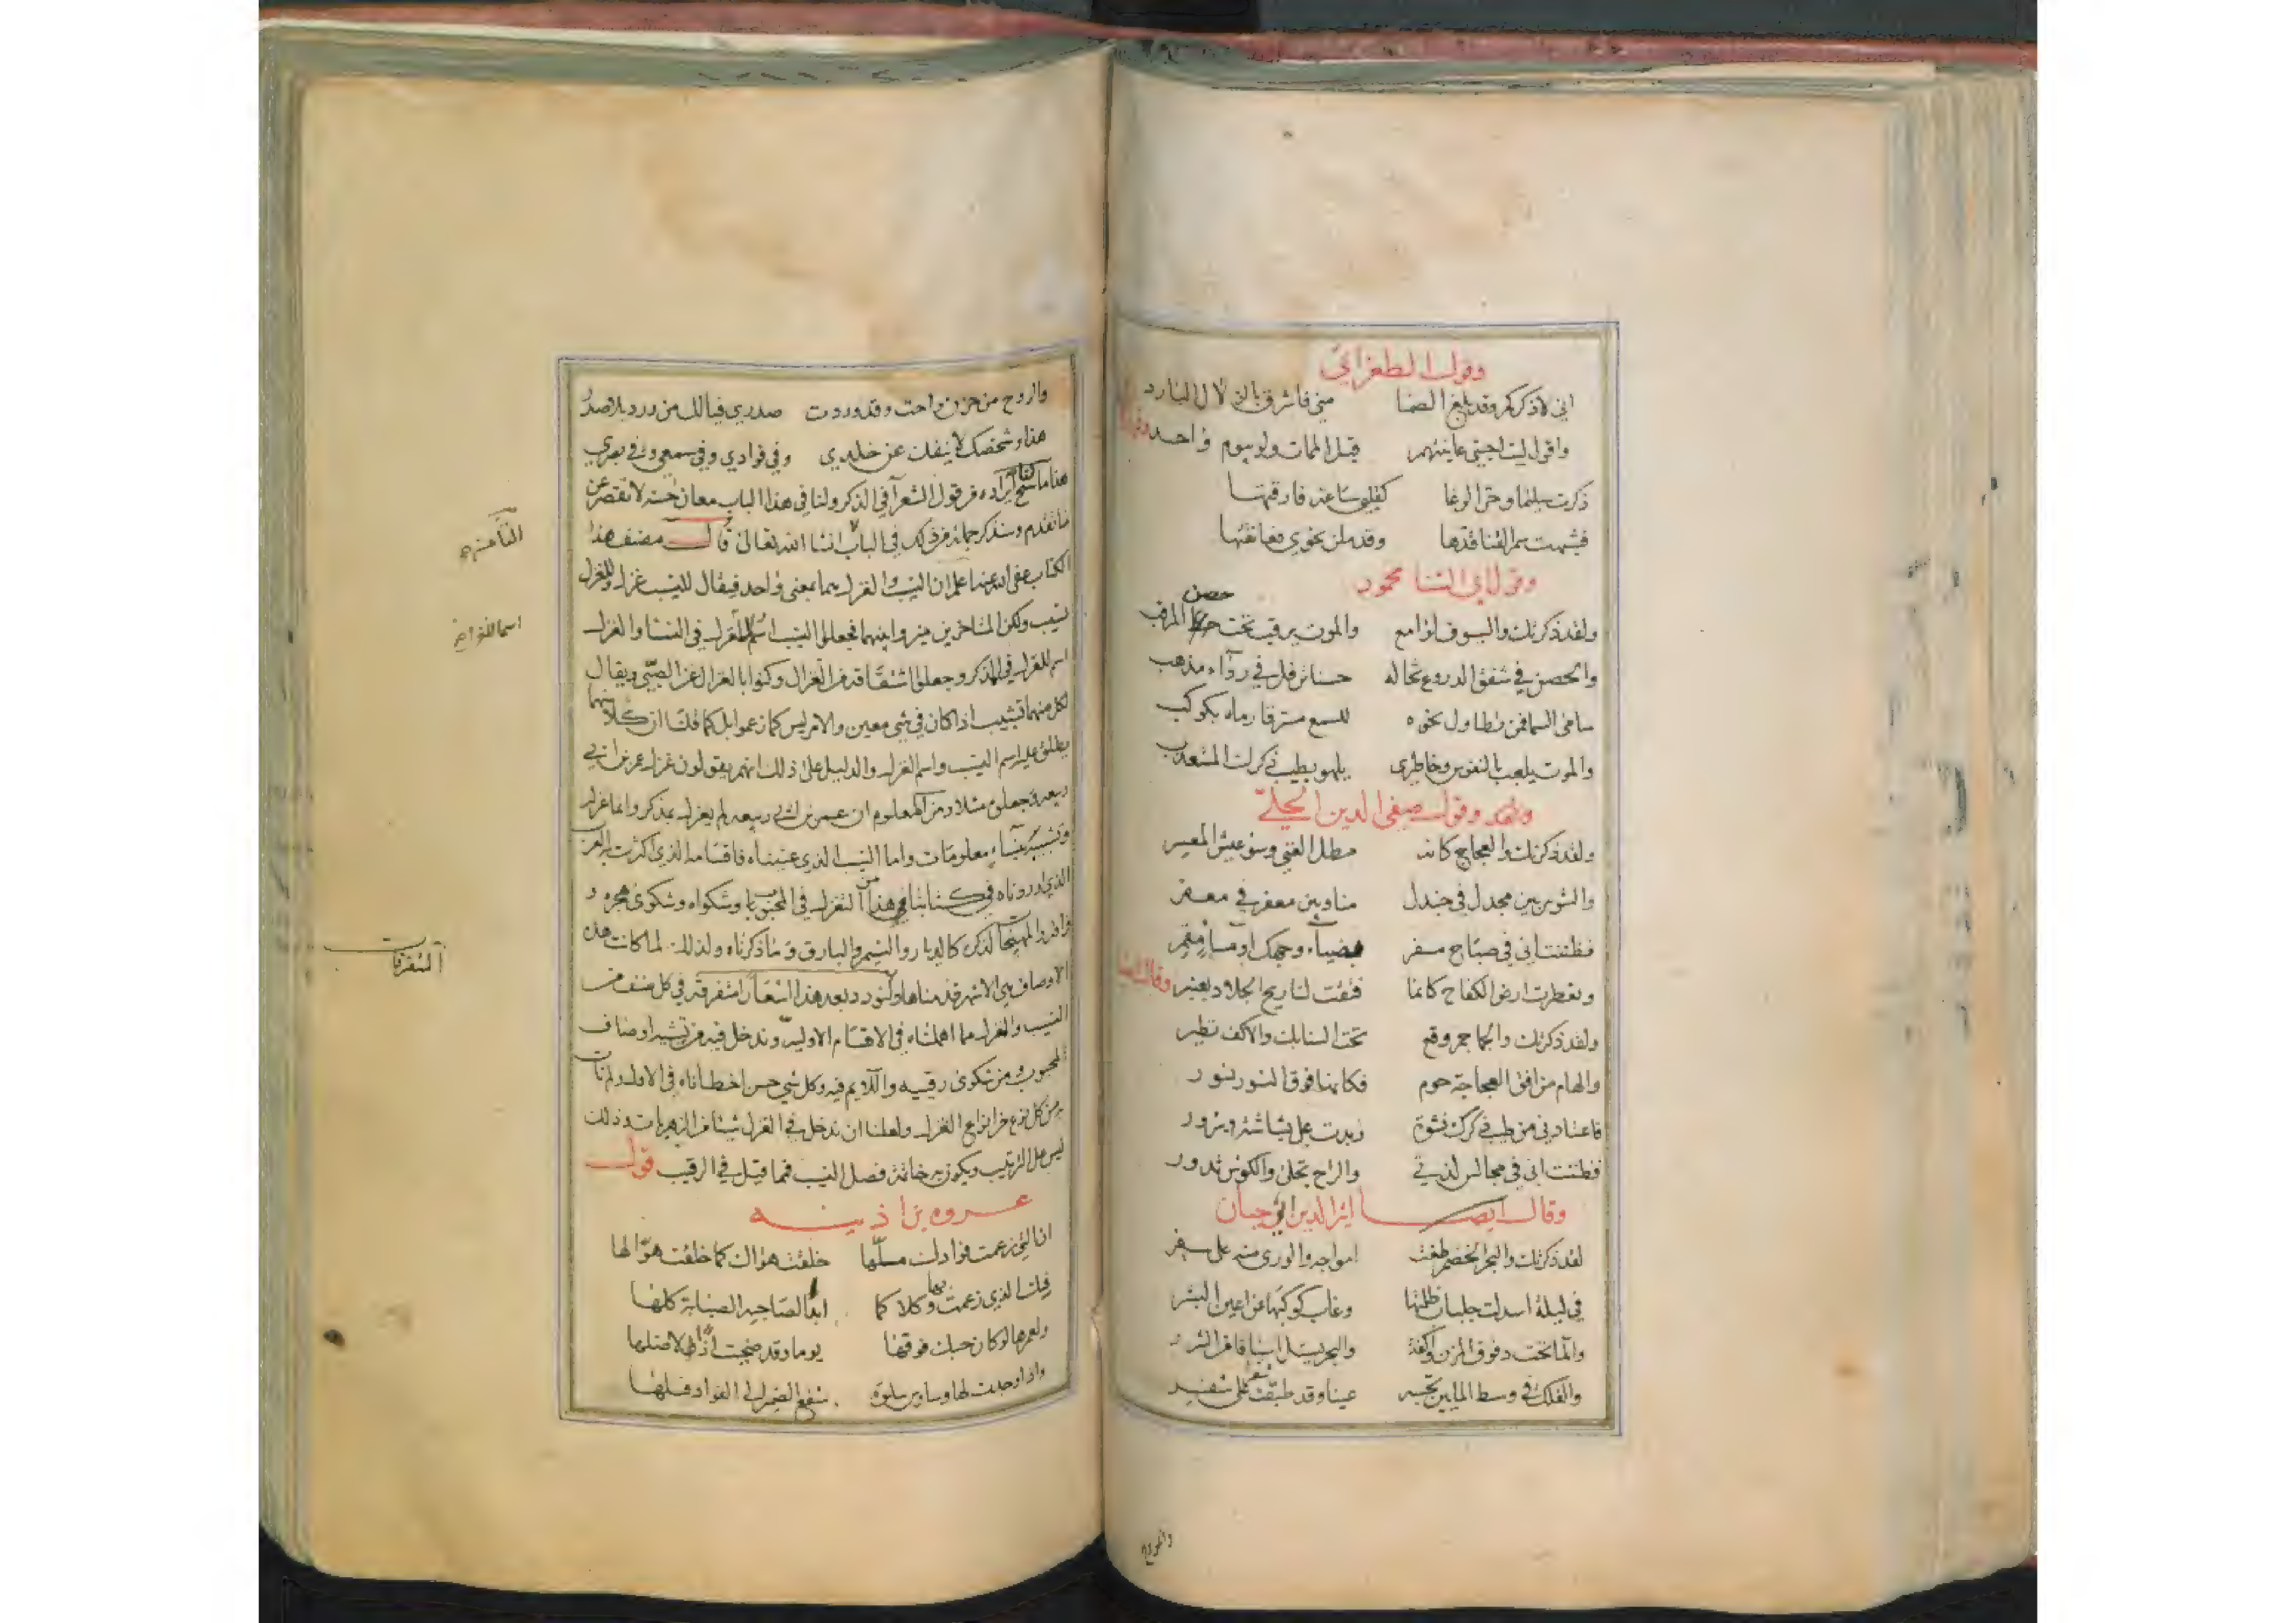 وقول الطغرائي
اني لاذكركم وقد بلغ الضما مني فاشرق بالزلال البارد
واقول ليت احبتي عاينتهم قبل الممات ولو بيوم واحد
ذكرت سليما وحر الوغا كقلبي ساعة فارقتها
فشبهت سمر القنا قدها وقد ملن نحوي فعانقتها
وقول ابي الثنا محمود
ولقد ذكرتك والسيوف لوامع والموت يرقب تحت حصن المرقب
والحصن في شفق الدروع تخاله حسناء ترفل في رداء مذهب
سامى السما فمن تطاول نحوه للسمع مسترقا رماه بكوكب
والموت يلعب بالنفوس وخاطري يلهو بطيب ذكرك المستعذب
وقول صفي الدين الحلي
ولقد ذكرتك والعجاج كانه مطل الغني وسوء عيش المعسر
والشوس بين مجدل في جندل منا وبين معفر في معفر
فظننت اني في صباح مسفر بضياء وجهك او مساء مقمر
وتعطرت ارض الكفاح كانما فتقت لنا ريح الجلاد بعنبر وقال ايضا
ولقد ذكرتك والجماجم وقع تحت السنابك والاكف تطير
والهام من افق العجاجة حوم فكانها فوق النسور نسور
فاعتادني من طيب ذكرك نشوة وبدت علي بشاشة وسرور
فظننت اني في مجالس لذتي والراح تجلى والكوس تدور
وقال ايضا اثير الدين ابي حيان
لقد ذكرتك والبحر الخضم طغت امواجه والورى منه على سفر
في ليلة اسدلت جلباب ظلمتها وغاب كوكبها عن اعين البشر
والما تحت وفوق المزن واكفه والبحر يستل اسيافا من الشرر
والفلك في وسط الماين تحسبه عينا وقد طبقت شفرا على شفر
والروح
والروح من حزن راحت وقد وردت صدري فيالك من ورد بلا صدر
هذا وشخصك لا ينفك عن خلدي وفي فوادي وفي سمعي وفي بصري
هذا ما سنح ايراده من قول الشعرآ في الذكر ولنا في هذا الباب معان حسنة لا تقصر عن
ما تقدم وسنذكر جملة من ذلك في الباب انشا الله تعالى قال مصنف هذا
الكتاب عفى الله عنه اعلم ان النسيب والغزل هما بمعنى واحد فيقال للنسيب غزل وللغزل
نسيب ولكن المتاخرين ميزوا بينهما فجعلوا النسيب اسم للغزل في النسا والغزل
اسم للغزل في المذكر وجعلوا اشتقاقه من الغزال وكنوا بالغزال عن الصبي ويقال
لكل منهما تشبيب اذا كان في شي معين والامر ليس كما زعموا بل كما قلنا ان كلا منهما
يطلق عليه اسم النسيب واسم الغزل والدليل على ذلك انهم يقولون غزل عمر بن ابي
ربيعة وجعلوه مثلا ومن المعلوم ان عمر بن ابي ربيعة لم يغزل بمذكر وانما غزله
وتشبيبه بنساء معلومات واما النسيب الذي عنيناه فاقسامه الذي اكثرت به العرب
الذي اوردناه في كتابنا هذا من التغزل في المحبوب وشكواه وشكوى هجره و
المهيجة لذكره كالديار والنسيم والبارق وما ذكرناه ولذلك لما كانت هذه
الاوصاف هي الاشهر قدمناها ولنورد بعد هذا اشعارا متفرقة في كل صنف من
النسيب والغزل مما اهملناه في الاقسام الاولية وندخل فيه من تشبيه اوصاف
المحبوب ومن شكوى رقيبه واللايم فيه وكل شي حسن اخطاناه في الاول ولم نات
به من كل نوع من انواع الغزل ولعلنا ان ندخل في الغزل شيئا من الزهريات وذلك
ليس على الترتيب ويكون به خاتمة فصل النسيب فما قيل في الرقيب قول
عروه بن اذينه
ان التي زعمت فوادك ملها خلقت هواك كما خلقت هوا لها
فيك الذي زعمت بها وكلاكما ابدا لصاحبه الصبابة كلها
ولعمرها لو كان حبك فوقها يوما وقد ضحيت اذا لاظلها
واذا وجدت لها وساوس سلوة شفع الضمير الى الفواد فسلها
الثامنة
المتفرقات